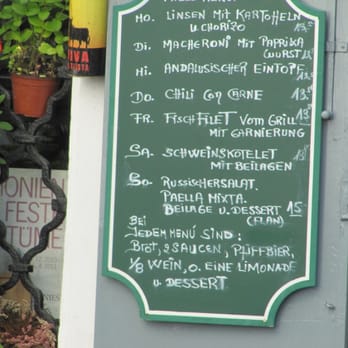 Mo. Linsen mit Kartoffeln
u. Chorizo 13.-
Di. Macheroni mit Paprika
Wurst 13.-
Mi. Andalusischer Eintopf 13.-
Do. Chili con Carne 13.-
Fr. Fischfilet vom Grill
mit Garnierung
Sa. Schweinskotelet
mit Beilagen 13.-
So. Russischersalat.
Paella Mixta.
Beilage u. Dessert 15.-
(Flan)
Bei
Jedem Menü sind:
Brot, 2 Saucen, Püffbier,
1/8 Wein, o. eine Limonade
u. Dessert
VIVA
ONIEN
FEST
TÜME